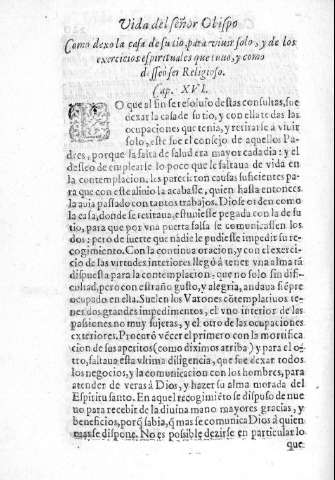 Vida del señor Obispo
Como dexo la casa de su tio, para viuir solo, y de los
exercicios espirituales que tuuo, y como
desseò ser Religioso.
Cap. XVI.
LO que al fin se resoluio destas consultas, fue
dexar la casa de su tio, y con ella todas las
ocupaciones que tenia, y retirarse à viuir
solo, este fue el consejo de aquellos Pa-
dres, porque la falta de salud era mayor cada dia: y el
desseo de emplearse lo poco que le faltaua de vida en
la contemplacion, les pareciï¿½ron causas suficientes pa-
ra que con este aliuio la acabasse, quien hasta entonces
la auia passado con tantos trabajos. Diose orden como
la casa, donde se retiraua, estuuiesse pegada con la de su
tio, para que por vna puerta falsa se comunicassen los
dos: pero de suerte que nadie le pudiesse impedir su re-
cogimiento. Con la continua oracion, y con el exerci-
cio de las virtudes interiores llegó à tener vna alma tã
dispuesta para la contemplacion, que no solo sin difi-
cultad, pero con estraño gusto, y alegria, andaua siẽpre
ocupado en ella. Suelen los Varones cõtemplatiuos te-
ner dos grandes impedimentos, el vno interior de las
passiones no muy sujetas, y el otro de las ocupaciones
exteriores. Procurò vẽcer el primero con la mortifica-
cion de sus apetitos (como diximos arriba) y para el o-
tro, faltaua esta vltima diligencia, que fue dexar todos
los negocios, y la comunicacion con los hombres, para
atender de veras à Dios, y hazer su alma morada del
Espiritu santo. En aquel recogimiẽto se dispuso de nue
uo para recebir de la diuina mano mayores gracias, y
beneficios, porq̃ sabia, q̃ mas se comunica Dios à quien
mas se dispone. No es possible dezirse en particular lo
que